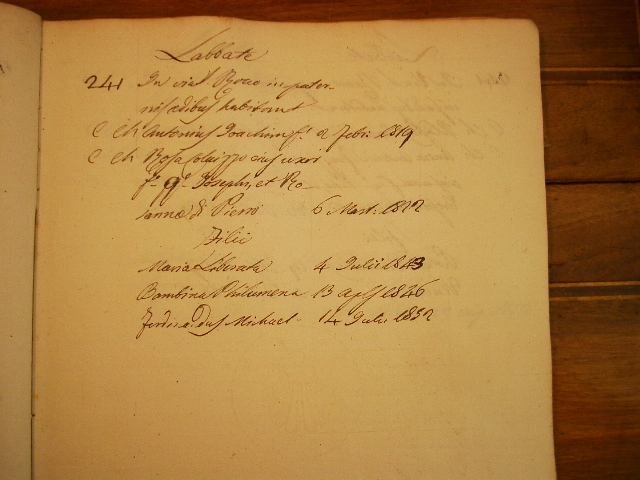 Labbate
241 In via S. Roco in pater-
nis ædibus habitant
C Ch Antonius Joachim f.s 2 Febr: 1819
C Ch Rosa eius uxor
f.a q.m Josephi, et Ro-
sannæ di Pierro 6 Mart: 1822
Filii
Maria Liberata 4 Julii 1843
Bambina Philumena 13 apls 1846
Ferdina.dus Michael 14 Julii 1852